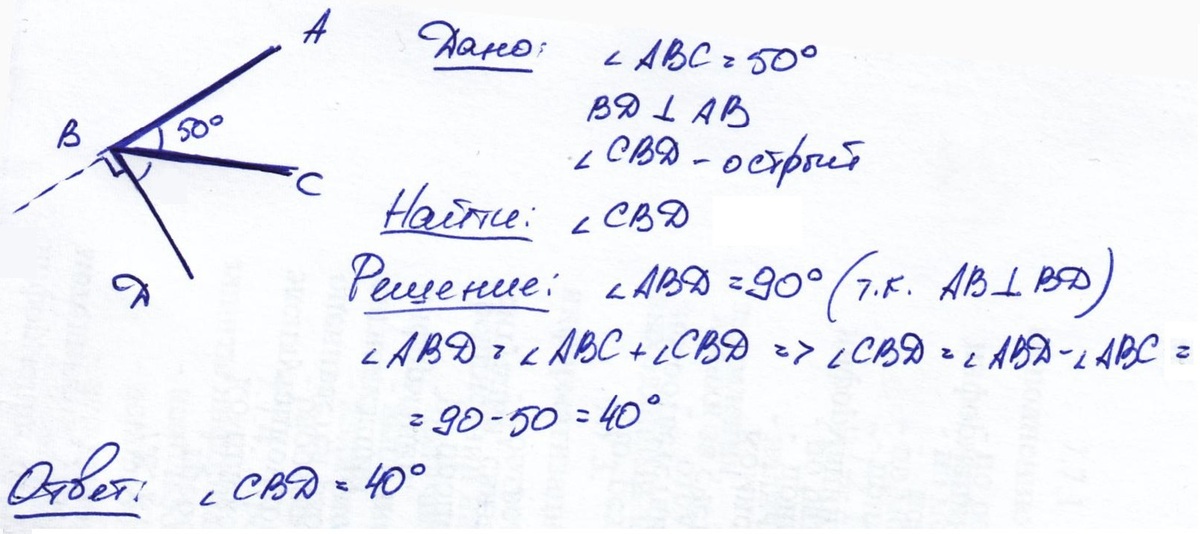 A
B
50°
C
D
Дано: ∠ABC = 50°
BD ⊥ AB
∠CBD - острый
Найти: ∠CBD
Решение: ∠ABD = 90° (т.к. AB ⊥ BD)
∠ABD = ∠ABC + ∠CBD => ∠CBD = ∠ABD - ∠ABC =
= 90 - 50 = 40°
Ответ: ∠CBD = 40°